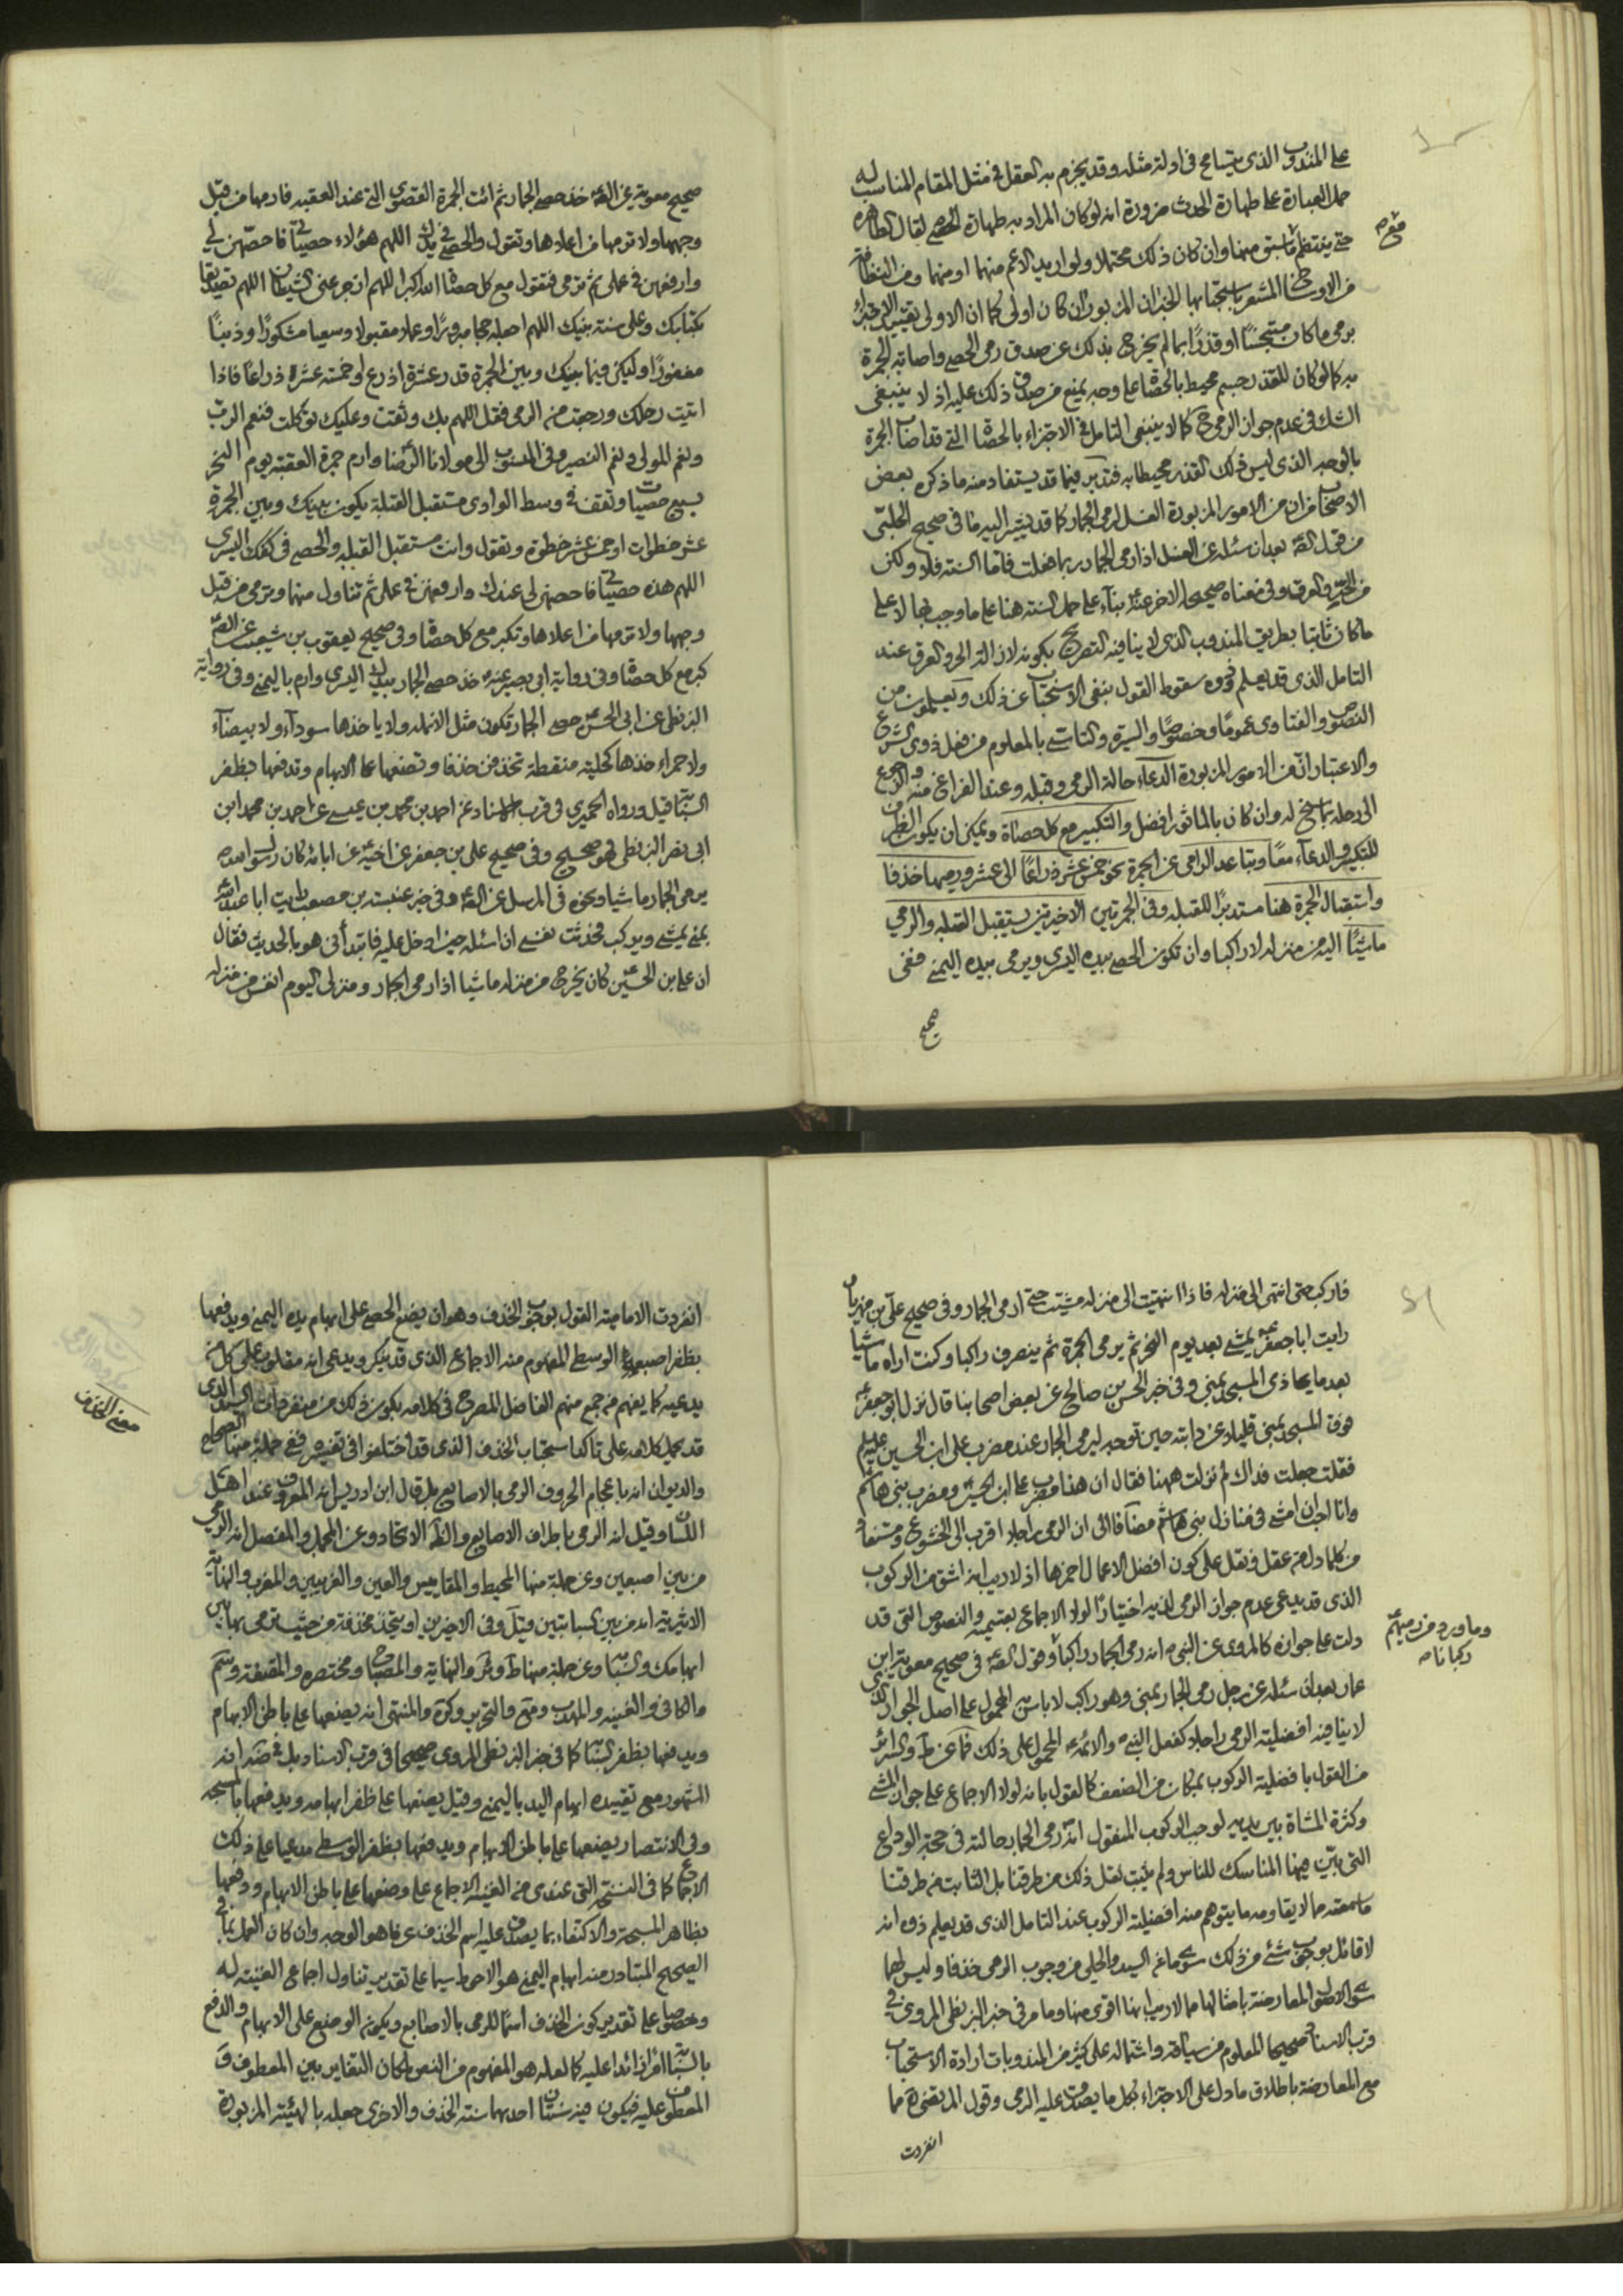 على المندوب الذى يتسامح فى ادلة مثله وقد يجزم به العقل فى مثل المقام المناسب له
حمل العبارة على طهارة الحدث ضرورة انه لو كان المراد به طهارة الحصى لقال طاهرة
حتى ينتظم ما سبق منها وان كان ذلك محتملا ولو اريد الاعم منهما او منها ومن النظافة
من الاوساخ المشعر باستحبابها الخبران المزبوران كان اولى كما ان الاولى تقييد الاجتزاء
برمى ما كان متنجسًا او قذرًا بما لم يخرج بذلك عن صدق رمى الحصى واصابته الجمرة
به كما لو كان للقذر جسم محيط بالحصاة على وجه يمنع من صدق ذلك عليه اذ لا ينبغى
الشك فى عدم جواز الرمى ح كما لا ينبغى التامل فى الاجتزاء بالحصاة التى قد اصاب الجمرة
بالوجه الذى ليس ذلك القذر محيطا به فتدبر فيما قد يستفاد منه ما ذكره بعض
الاصحاب من ان من الامور المزبورة الغسل لرمى الجمار كما قد يشير اليه ما فى صحيح الحلبى
من قول الصّ بعد ان سئله عن الغسل اذا رمى الجمار ربما فعلت فاما السنة فلا ولكن
من الحر والعرق وفى معناه صحيحه الاخر عنه بناء على حمل السنة هنا على ما وجب بها لا على
ما كان ثابتا بطريق المندوب الذى لا ينافيه التصريح بكونه لازالة الحر والعرق عند
التامل الذى قد يعلم ذووه سقوط القول بنفى الاستحباب عن ذلك ويعلمون من
النصوص والفتاوى عمومًا وخصوصًا والسيرة والتاسى بالمعلوم من فعل ذوى الشرع
والاعتبار انّ من الامور المزبورة الدعاء حالة الرمى وقبله وعند الفراغ منه والرجوع
الى رحله بما سنح له وان كان بالماثور افضل والتكبير مع كل حصاة ويمكن ان يكون الظرف
للتكبير والدعاء معًا ويتباعد الرامى عن الجمرة بنحو خمس عشر ذراعًا الى عشر ويرميها خذفا
واستقبال الجمرة هنا مستدبرًا للقبلة وفى الجمرتين الاخيرتين يستقبل القبلة والرمى
ماشيًا اليه من منزله لا راكبا وان تكون الحصى بيده اليسرى ويرمى بيده اليمنى ففى
صحيح
صحيح معوية عن الصّ خذ حصى الجمار ثم ائت الجمرة القصوى التى عند العقبة فارمها من قبل
وجهها ولا ترمها من اعلاها وتقول والحصى فى يدك اللهم هؤلاء حصياتى فاحصهن لى
وارفعهن فى عملى ثم ترمى فتقول مع كل حصاة الله اكبر اللهم ازجر عنى الشيطان اللهم تصديقا
بكتابك وعلى سنة نبيك اللهم اجعله حجا مبرورًا وعملا مقبولا وسعيا مشكورًا وذنبًا
مغفورًا وليكن فيما بينك وبين الجمرة قدر عشرة اذرع او خمسة عشرة ذراعًا فاذا
اتيت رحلك ورجعت من الرمى فقل اللهم بك وثقت وعليك توكلت فنعم الرب
ونعم المولى ونعم النصير وفى المنسوب الى مولانا الرضا وارم جمرة العقبة يوم النحر
بسبع حصيات وتقف فى وسط الوادى مستقبل القبلة يكون بينك وبين الجمرة
عشر خطوات او خمس عشر خطوة وتقول وانت مستقبل القبلة والحصى فى كفك اليسرى
اللهم هذه حصياتى فاحصهن لى عندك وارفعهن فى عملى ثم تناول منها وترمى من قبل
وجهها ولا ترمها من اعلاها وتكبر مع كل حصاة وفى صحيح يعقوب بن شعيب عن الصّ
كبر مع كل حصاة وفى رواية ابى بصير عنه خذ حصى الجمار بيدك اليسرى وارم باليمنى وفى رواية
البزنطى عن ابى الحسن حصى الجمار تكون مثل الانملة ولا ياخذها سوداء ولا بيضاء
ولا حمراء خذها كحلية منقطة تخذفهن خذفا وتضعها على الابهام وتدفعها بظفر
السبابة قيل ورواه الحميرى فى قرب الاسناد عن احمد بن محمد بن عيسى عن احمد بن محمد ابن
ابى نصر البزنطى فهو صحيح وفى صحيح على بن جعفر عن اخيه عن ابائه كان رسول الله
يرمى الجمار ماشيا ونحوه فى المرسل عن الصّ وفى خبر عنبسة بن مصعب رايت ابا عبد الله
بمنى يمشى ويركب فحدثت نفسى ان اسئله حين ادخل عليه فابتدأنى هو بالحديث فقال
ان على بن الحسين كان يخرج من منزله ماشيا اذا رمى الجمار ومنزلى اليوم انفس من منزله
فاركب حتى انتهى الى منزله فاذا انتهيت الى منزله مشيت حتى ارمى الجمار وفى صحيح على بن مهزيار
رايت ابا جعفر يمشى بعد يوم النحر ثم يرمى الجمرة ثم ينصرف راكبا وكنت اراه ماشيا
بعد ما يحاذى المسجد بمنى وفى خبر الحسن بن صالح عن بعض اصحابنا قال نزل ابو جعفر
فوق المسجد بمنى قليلا عن دابته حين توجه ليرمى الجمار عند مضرب على ابن الحسين عليهم
فقلت جعلت فداك لم نزلت ههنا فقال ان هذا مضرب على ابن الحسين ومضرب بنى هاشم
وانا احب ان امشى فى منازل بنى هاشم مضافا الى ان الرمى راجلا اقرب الى الخشوع ومستفاد
من كلما دل من عقل ونقل على كون افضل الاعمال احمزها اذ لا ريب انه اشق من الركوب
الذى قد يدعى عدم جواز الرمى لذيه اختيارًا لولا الاجماع بقسميه والنصوص التى قد
دلت على جوازه كالمروى عن النبى انه رمى الجمار راكبا وقول الصّ فى صحيح معوية ابن
وما ورد من رميهم
ركبانا
عمار بعد ان سئله عن رجل رمى الجمار بمنى وهو راكب لا باس به المحمول على اصل الجواز الذى
لا ينافيه افضلية الرمى راجلا كفعل النبى والائمة المحمول على ذلك فما عن ط والسرائر
من القول بافضلية الركوب بمكان من الضعف كالقول بانه لولا الاجماع على جواز المشى
وكثرة المشاة بين يديه لوجب الركوب المنقول انه رمى الجمار حالته فى حجة الوداع
التى بيّن فيها المناسك للناس ولم يثبت نقل ذلك من طرقنا بل الثابت من طرقنا
ما سمعته مما لا يقاومه ما يتوهم منه افضلية الركوب عند التامل الذى قد يعلم ذووه انه
لا قائل بوجوب شئ من ذلك سوى ما عن السيد والحلى من وجوب الرمى خذفا وليس لهما
سوى الاصول المعارضة بامثالها مما لا ريب انها اقوى منها وما مر فى خبر البزنطى المروى فى
قرب الاسناد صحيحا المعلوم من سياقه واشتماله على كثير من المندوبات ارادة الاستحباب
مع المعارضة باطلاق ما دل على الاجتزاء بكل ما يصدق عليه الرمى وقول المرتضى ره مما
انفردت
انفردت الامامية القول بوجوب الخذف وهو ان يضع الحصى على ابهام يده اليمنى ويدفعها
بظفر اصبعه الوسطى المفهوم منه الاجماع الذى قد ينكر ويدعى انه مقلوب على كل من
يدعيه كما يفهم من جمع منهم الفاضل المصرح فى كلامه بكون ذلك من منفردات السيد الذى
معنى الخذف
قد يحمل كلامه على تاكد استحباب الخذف الذى قد اختلفوا فى تفسيره ففى جملة منها الصحاح
والديوان انه باعجام الحروف الرمى بالاصابع بل قال ابن ادريس انه المعروف عند اهل
اللسان وقيل انه الرمى باطراف الاصابع والظ الاتحاد وعن المجمل والمفصل انه الرمى
من بين اصبعين وعن جملة منها المحيط والمقاييس والعين والغريبين والمغرب والنهاية
الاثيرية انه من بين السبابتين قيل وفى الاخيرين او يتخذ مخذفة من خشب ترمى بها بين
ابهامك والسبابة وعن جملة منها ط وير والنهاية والمصباح ومختصره والمقنعة وسم
والكافى والغنية والمهذب ومع والتحرير وكره والمنتهى انه يضعها على باطن الابهام
ويدفعها بظفر السبابة كما فى خبر البزنطى المروى صحيحا فى قرب الاسناد بل فى ضه انه
المشهور مع تقييده ابهام اليد باليمنى وقيل يضعها على ظفر ابهامه ويدفعها بالمسبحة
وفى الانتصار يضعها على باطن الابهام ويدفعها بظفر الوسطى مدعيا على ذلك
الاجماع كما فى النسخة التى عندى من الغنية الاجماع على وضعها على باطن الابهام ودفعها
بظاهر المسبحة والاكتفاء بما يصدق عليه اسم الخذف عرفا هو الوجه وان كان العمل بما فى
الصحيح المتبادر منه ابهام اليمنى هو الاحوط سيما على تقدير تناول اجماع الغنية له
وخصوصا على تقدير كون الخذف اسمًا للرمى بالاصابع ويكون الوضع على الابهام والدفع
بالسبابة امرًا زائدا عليه كما لعله هو المفهوم من النص لمكان التغاير بين المعطوف و
المعطوف عليه فيكون فيه سنتان احديهما سنة الخذف والاخرى جعله بالهيئة المزبورة